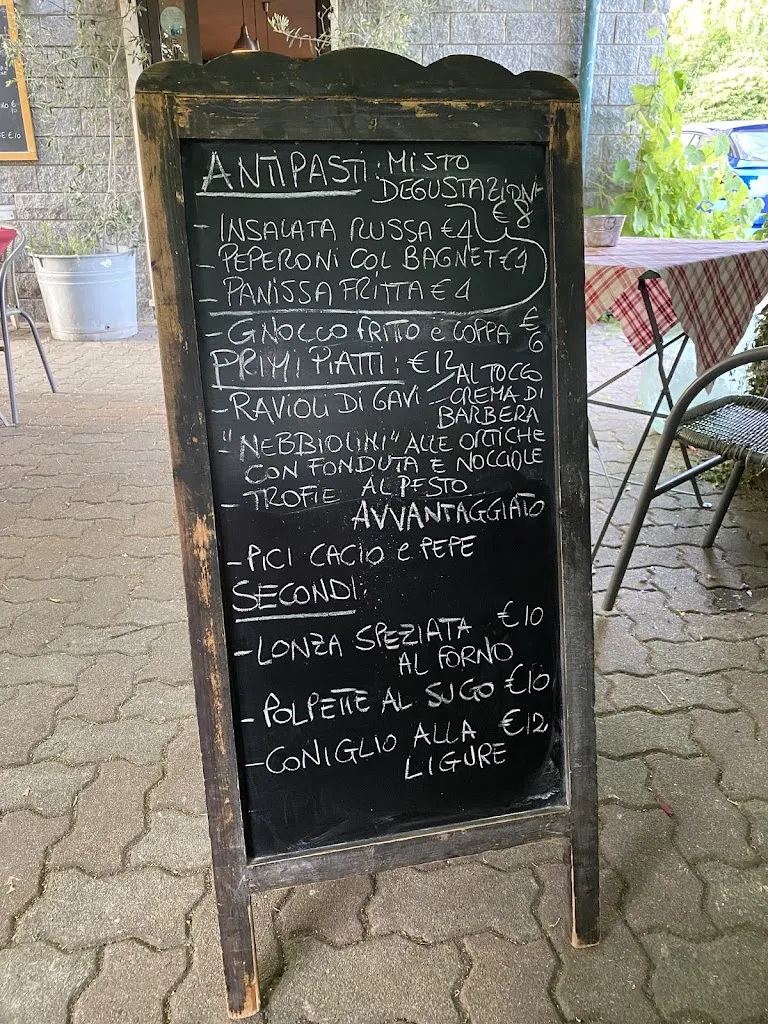 ANTIPASTI: MISTO
DEGUSTAZION
€8
- INSALATA RUSSA €4
- PEPERONI COL BAGNET €4
- PANISSA FRITTA € 4
- GNOCCO FRITTO e COPPA € 6
PRIMI PIATTI: €12
- RAVIOLI DI GAVI AL TOCCO
CREMA DI
BARBERA
- "NEBBIOLINI" ALLE ORTICHE
CON FONDUTA E NOCCIOLE
- TROFIE AL PESTO
AVVANTAGGIATO
- PICI CACIO e PEPE
SECONDI:
- LONZA SPEZIATA €10
AL FORNO
- POLPETTE AL SUGO €10
- CONIGLIO ALLA €12
LIGURE